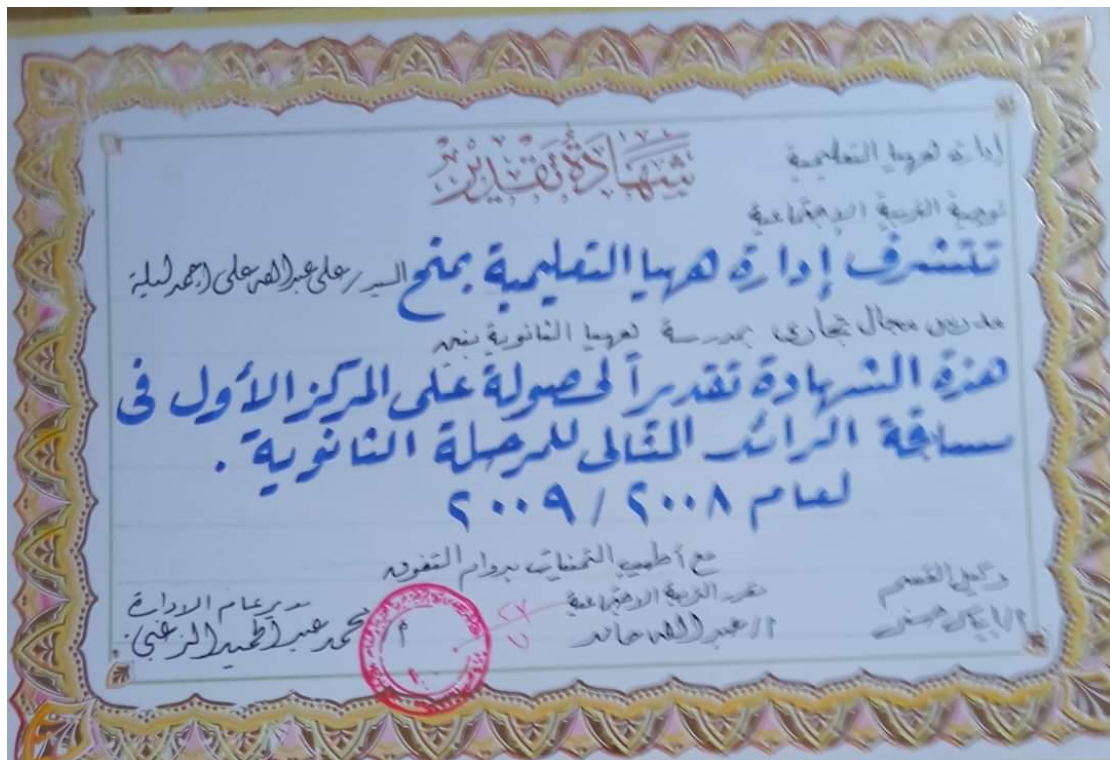 شهادة تقدير
إدارة ههيا التعليمية
توجية التربية الاجتماعية
تتشرف إدارة ههيا التعليمية بمنح السيد / على عبد الله على احمد ليلة
مدرس مجال تجارى بمدرسة ههيا الثانوية بنين
هذة الشهادة تقديراً لحصولة على المركز الأول فى
مسابقة الرائد المثالى للمرحلة الثانوية .
لعام ٢٠٠٨ / ٢٠٠٩
مع أطيب التمنيات بدوام التفوق
وكيل القسم
التربية الاجتماعية
أ / عبد الله حامد
مدير عام الادارة
م محمد عبد الحميد الزغبى